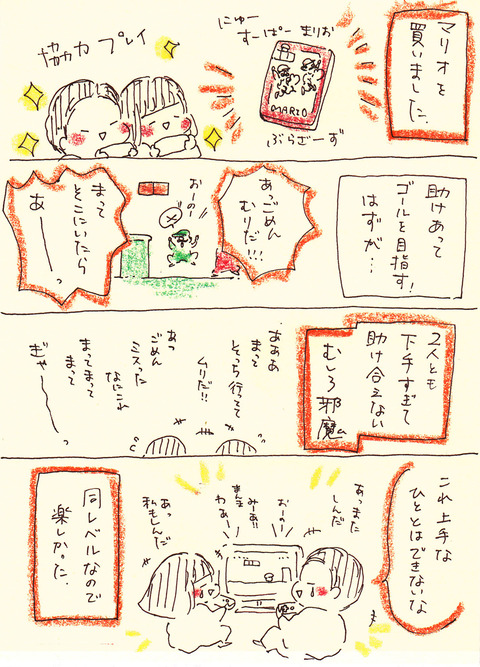 マリオを
買いました。
にゅー
すーぱー まりお
ぶらざーず
MARIO
協力プレイ
助けあって
ゴールを目指す!
はずが…
あっごめん
むりだ!!!
おーのー
まって
そこにいたら
あーーっ
2人とも
下手すぎて
助け合えない
むしろ邪魔
あああ
まって
そっち行って
ムリだ!!
あっ
ごめん
ミスった
なにこれ
まってまって
まって
ぎゃーーっ
これ上手な
ひととはできないな
あっまた
しんだ
おーのー
みーあ!!
わぁー
あっ
私もしんだ
同レベルなので
楽しかった。